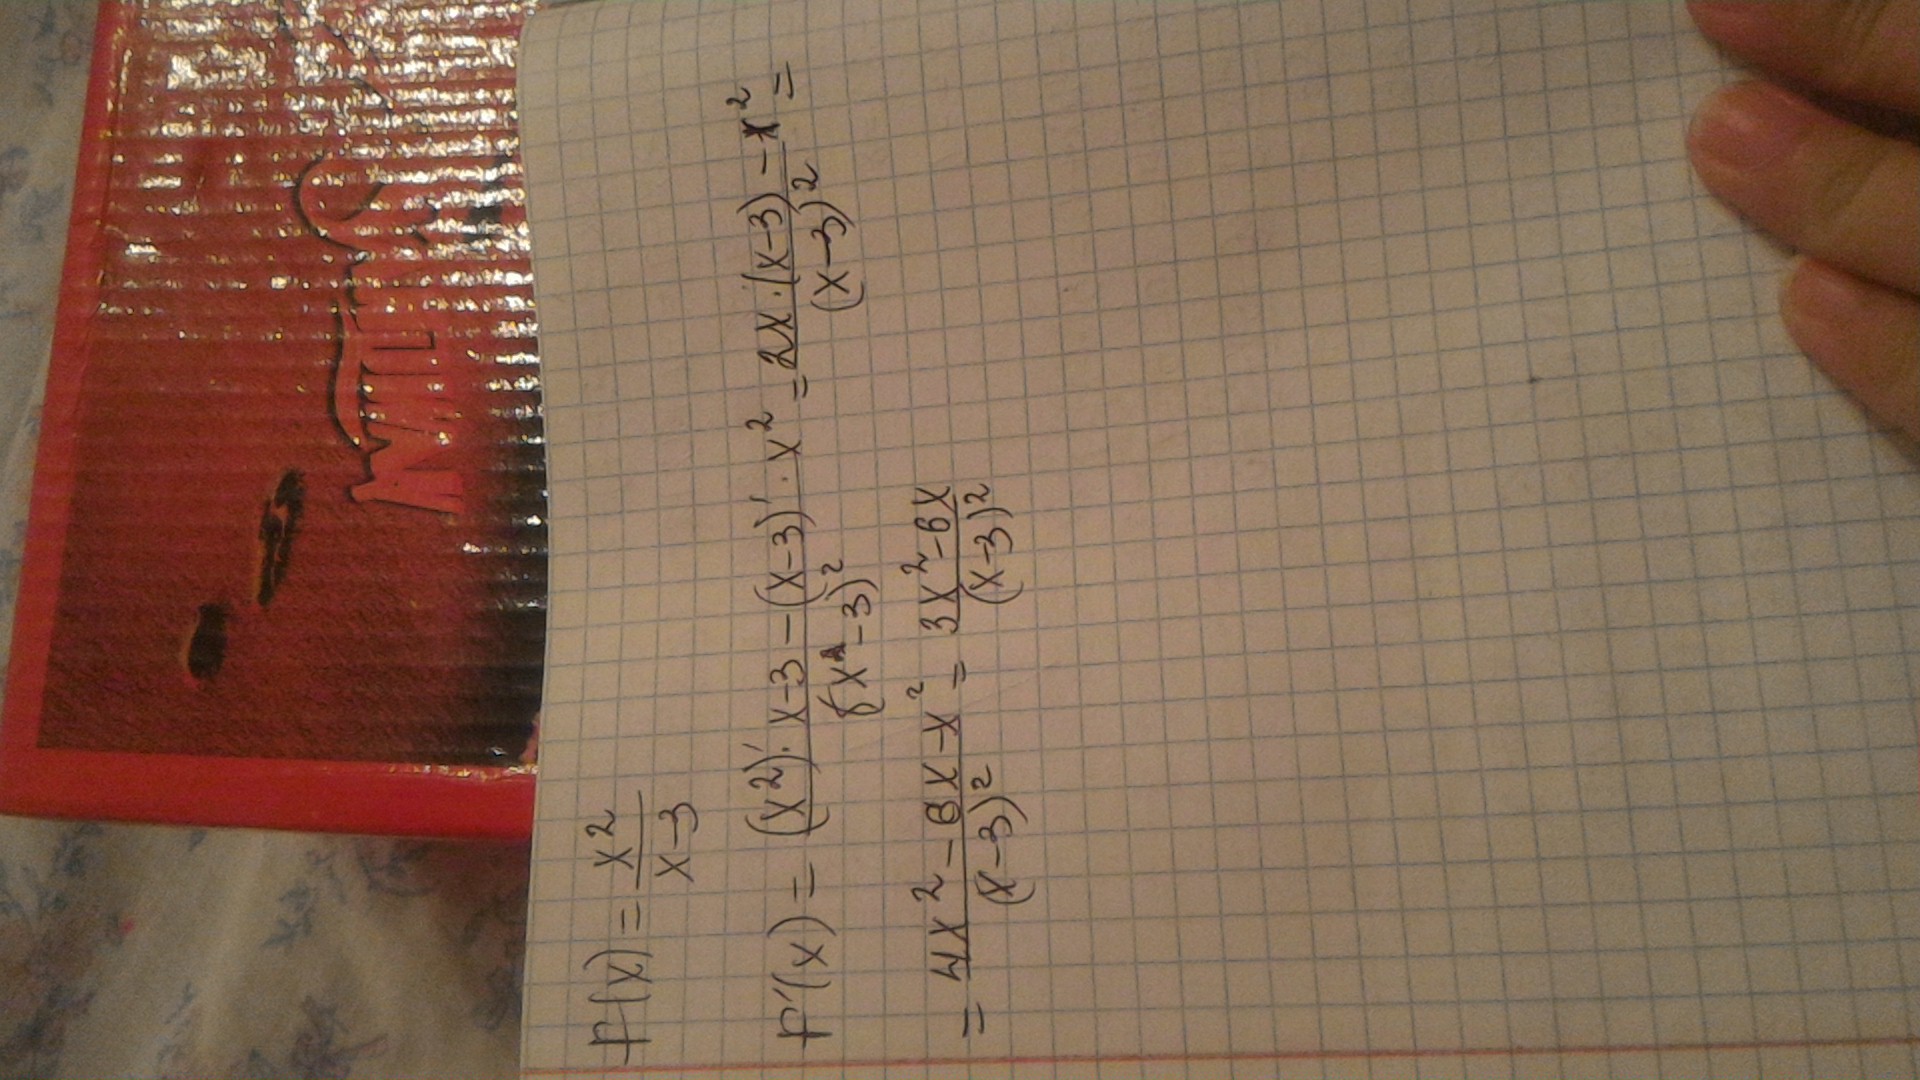 f(x) = x² / x-3
f'(x) = (x²)' · x-3 - (x-3)' · x² / (x-3)² = 2x · (x-3) - x² / (x-3)² =
= 4x² - 6x - x² / (x-3)² = 3x² - 6x / (x-3)²